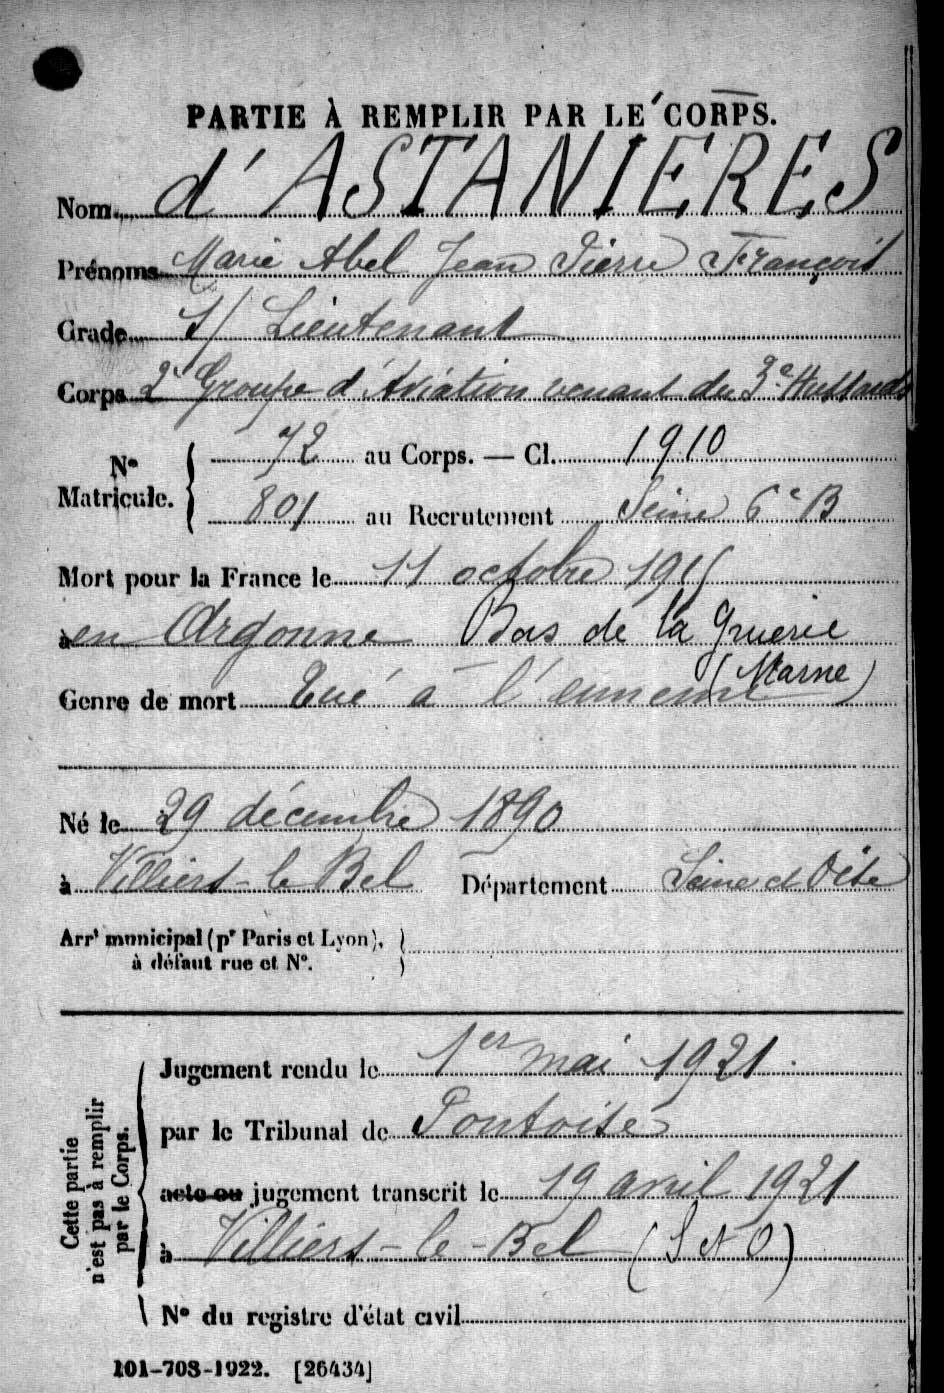 PARTIE À REMPLIR PAR LE CORPS.
Nom d'ASTANIÈRES
Prénoms Marie Abel Jean Pierre François
Grade S/ Lieutenant
Corps 2e Groupe d'Aviation venant du 3e Hussards
No Matricule. { 72 au Corps. — Cl. 1910
801 au Recrutement Seine 6e B
Mort pour la France le 11 octobre 1915
à en Argonne Bois de la Gruerie
(Marne)
Genre de mort Tué à l'ennemi
Né le 29 décembre 1890
à Villiers-le Bel Département Seine et Oise
Arrt municipal (pr Paris et Lyon), à défaut rue et No. }
Cette partie n'est pas à remplir par le Corps.
Jugement rendu le 1er mai 1921.
par le Tribunal de Pontoise
acte ou jugement transcrit le 19 avril 1921
à Villiers-le-Bel (S et O)
No du registre d'état civil
101-708-1922. [26434]